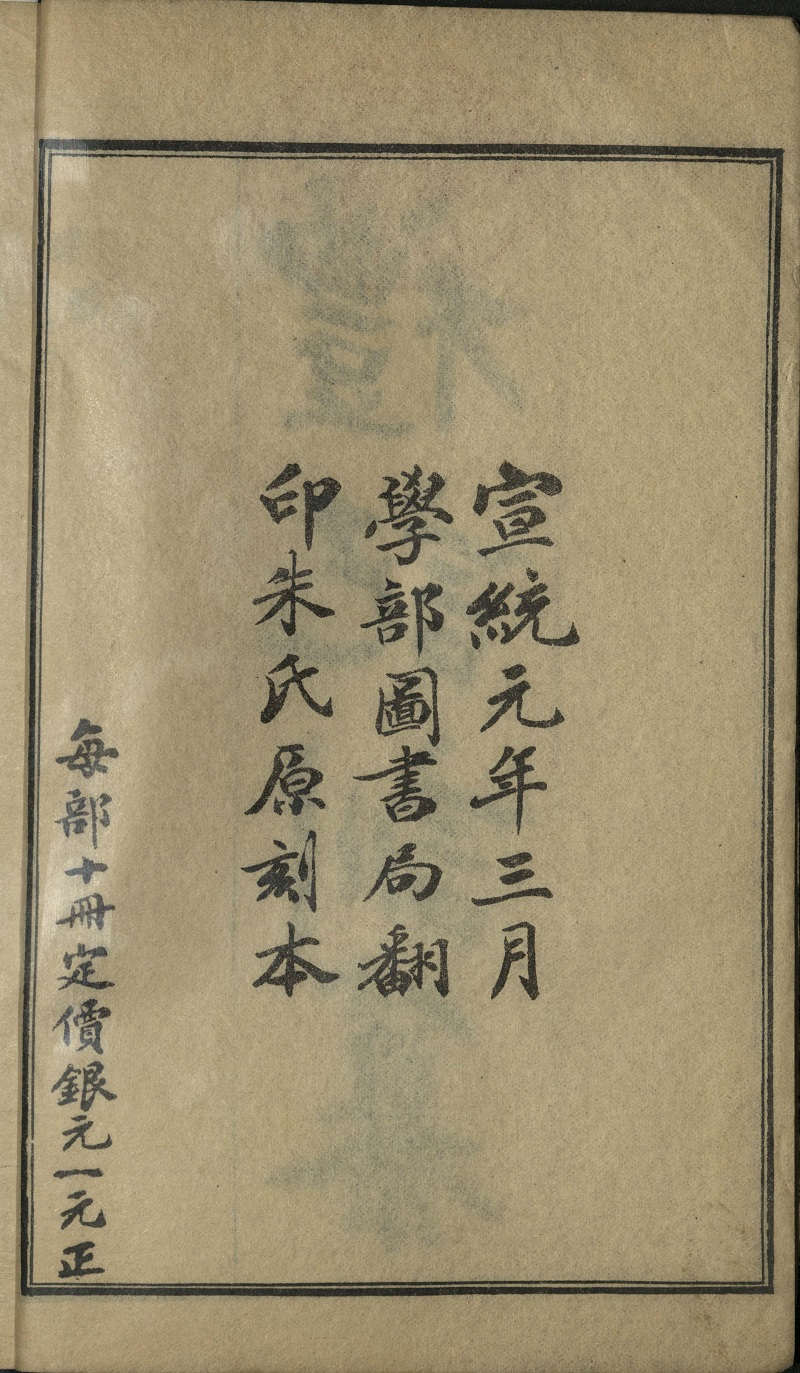 宣統元年三月
學部圖書局翻
印朱氏原刻本
每部十冊定價銀元一元正